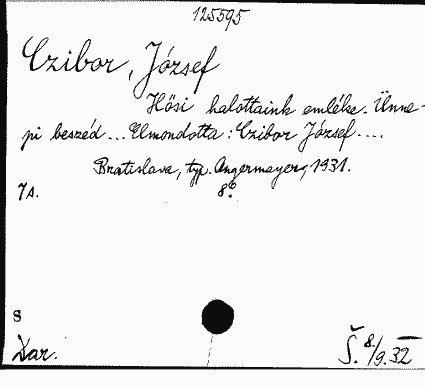 125595
Czibor, József
Hősi halottaink emléke. Ünne-
pi beszéd... Elmondotta: Czibor József....
Bratislava, typ. Angermayer, 1931.
7A. 8°
S
Dar. Š. 8./9.32